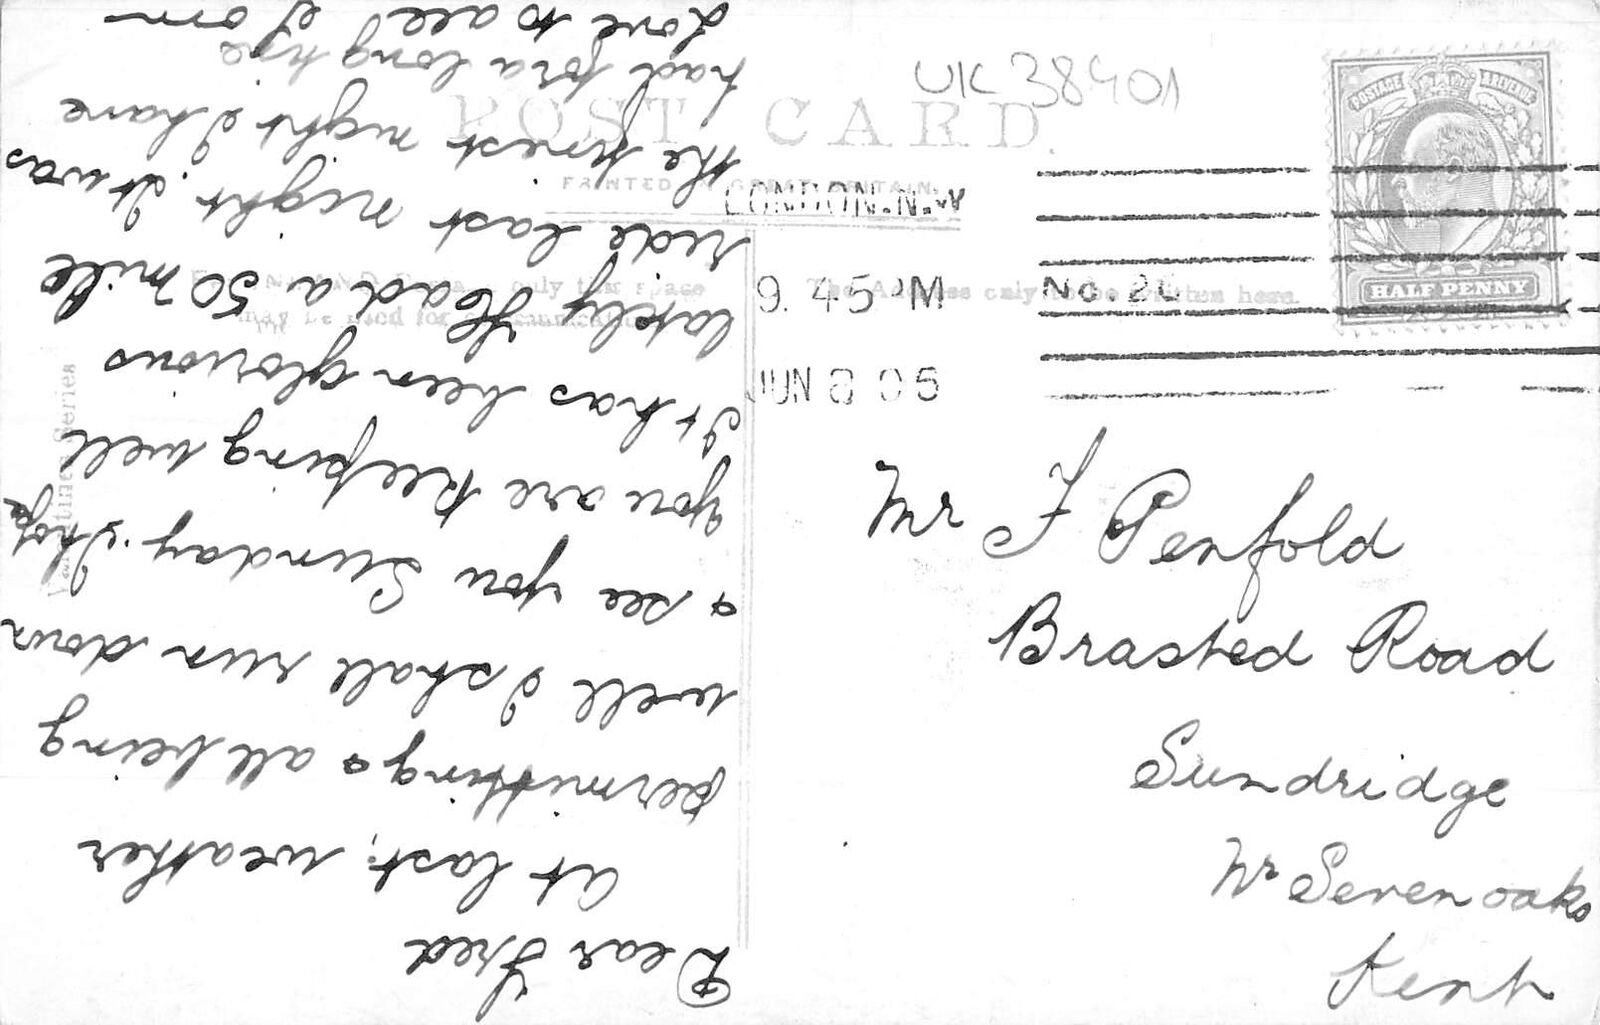 UK 38401
POST CARD.
PRINTED IN GREAT BRITAIN.
LONDON. N.W
9. 45 PM
JUN 8 05
No. 20
POSTAGE & REVENUE
HALF PENNY
may be used for communication
The Address only to be written here.
Valentines Series
Mr F Penfold
Brasted Road
Sundridge
Nr Sevenoaks
Kent
Dear Fred
At last, weather
permitting & all being
well I shall run down
& see you Sunday. I hope
you are keeping well
It has been glorious
lately Had a 50 mile
ride last night. It was
the finest night I have
had for a long time
Love to all